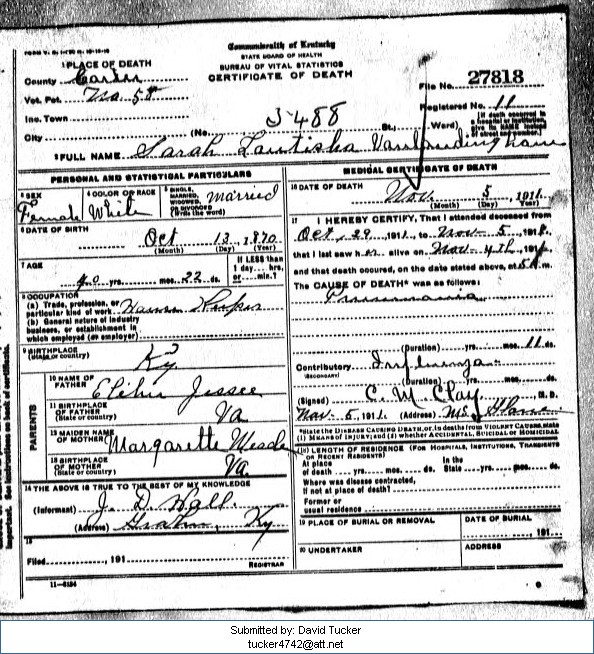 Commonwealth of Kentucky
STATE BOARD OF HEALTH
BUREAU OF VITAL STATISTICS
CERTIFICATE OF DEATH
1 PLACE OF DEATH
County Carter
Vot. Pct. No 58
Inc. Town
City
(No. 3488 St., Ward)
File No. 27818
Registered No. 11
2 FULL NAME Sarah Lautisha Vanlandingham
PERSONAL AND STATISTICAL PARTICULARS
3 SEX
Female
4 COLOR OR RACE
White
5 SINGLE, MARRIED, WIDOWED, OR DIVORCED
(Write the word)
Married
6 DATE OF BIRTH
Oct 13, 1870
(Month) (Day) (Year)
7 AGE
40 yrs. mos. 22 ds.
If LESS than
1 day.... hrs.
or.....min.?
8 OCCUPATION
(a) Trade, profession, or
particular kind of work House Keeper
(b) General nature of industry
business, or establishment in
which employed (or employer)
9 BIRTHPLACE
(State or country)
Ky
PARENTS
10 NAME OF
FATHER
Elihu Jessee
11 BIRTHPLACE
OF FATHER
(State or country)
Va
12 MAIDEN NAME
OF MOTHER
Margarette Meade
13 BIRTHPLACE
OF MOTHER
(State or country)
Va
14 THE ABOVE IS TRUE TO THE BEST OF MY KNOWLEDGE
(Informant) J. D. Wall
(Address) Ky
15
Filed, 191
REGISTRAR
11-6184
MEDICAL CERTIFICATE OF DEATH
16 DATE OF DEATH
Nov. 5, 1911
(Month) (Day) (Year)
17 I HEREBY CERTIFY, That I attended deceased from
Oct, 29, 1911, to Nov 5, 191
that I last saw her alive on Nov 4th, 191
and that death occured, on the date stated above, at 5 m.
The CAUSE OF DEATH* was as follows:
Pneumonia
(Duration) yrs. mos. 11 ds.
Contributory Influenza
(SECONDARY)
(Duration) yrs. mos. ds.
(Signed) C. M. Clay, M. D.
Nov. 5, 1911. (Address)
*State the DISEASE CAUSING DEATH, or, in deaths from VIOLENT CAUSES, state
(1) MEANS OF INJURY; and (2) whether ACCIDENTAL, SUICIDAL or HOMICIDAL
18 LENGTH OF RESIDENCE (FOR HOSPITALS, INSTITUTIONS, TRANSIENTS
OR RECENT RESIDENTS)
At place
of death yrs. mos. ds.
In the
State yrs. mos. ds.
Where was disease contracted,
if not at place of death?
Former or
usual residence
19 PLACE OF BURIAL OR REMOVAL
DATE OF BURIAL
, 191
20 UNDERTAKER
ADDRESS
Submitted by: David Tucker
tucker4742@att.net